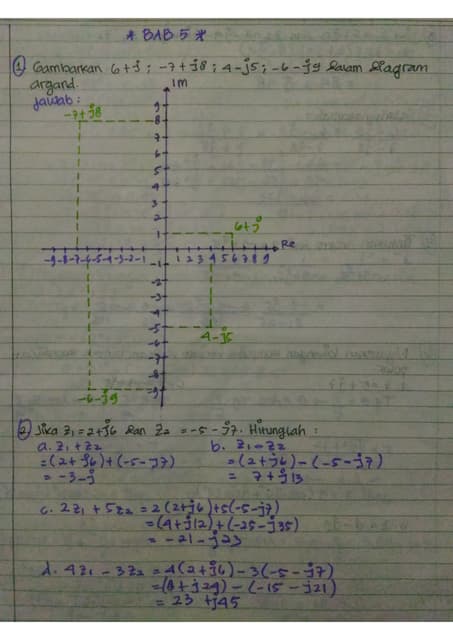 * BAB 5 *
① Gambarkan 6+j ; -7+j8 ; 4-j5 ; -6-j9 dalam diagram
argand.
jawab :
Im
-7+j8
9
8
7
6
5
4
3
2
1
6+j
-9 -8 -7 -6 -5 -4 -3 -2 -1 1 2 3 4 5 6 7 8 9 Re
-1
-2
-3
-4
-5
4-j5
-6
-7
-8
-9
-6-j9
② Jika z₁=2+j6 dan z₂ = -5 - j7. Hitunglah :
a. z₁+z₂
= (2+j6)+(-5-j7)
= -3-j
b. z₁-z₂
= (2+j6) - (-5-j7)
= 7+j13
c. 2z₁ + 5z₂ = 2(2+j6)+5(-5-j7)
= (4+j12)+(-25-j35)
= -21-j23
d. 4z₁ - 3z₂ = 4(2+j6)-3(-5-j7)
= (8+j24) - (-15-j21)
= 23 +j45